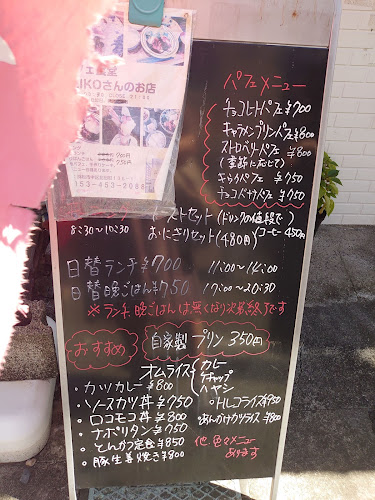 パフェメニュー
チョコレートパフェ ¥700
キャラメルプリンパフェ ¥800
ストロベリーパフェ ¥800
(季節に応じて)
チョコバナナパフェ ¥750
さんのお店
053-453-2088
8:30~10:30
ーストセット(ドリンクの値段で)
おにぎりセット(480円)
コーヒー450円
日替ランチ ¥700 11:00~14:00
日替晩ごはん ¥750 17:00~20:30
※ランチ、晩ごはんは無くなり次第終了です
おすすめ
自家製プリン 350円
オムライス
カレー
ケチャップ
ハヤシ
・カツカレー ¥800
・ソースカツ丼 ¥750
・ロコモコ丼 ¥800
・ナポリタン ¥750
・とんかつ定食 ¥850
・豚生姜焼き ¥800
・トルコライス ¥950
・あんかけカツライス ¥800
他 色々メニュー
あります